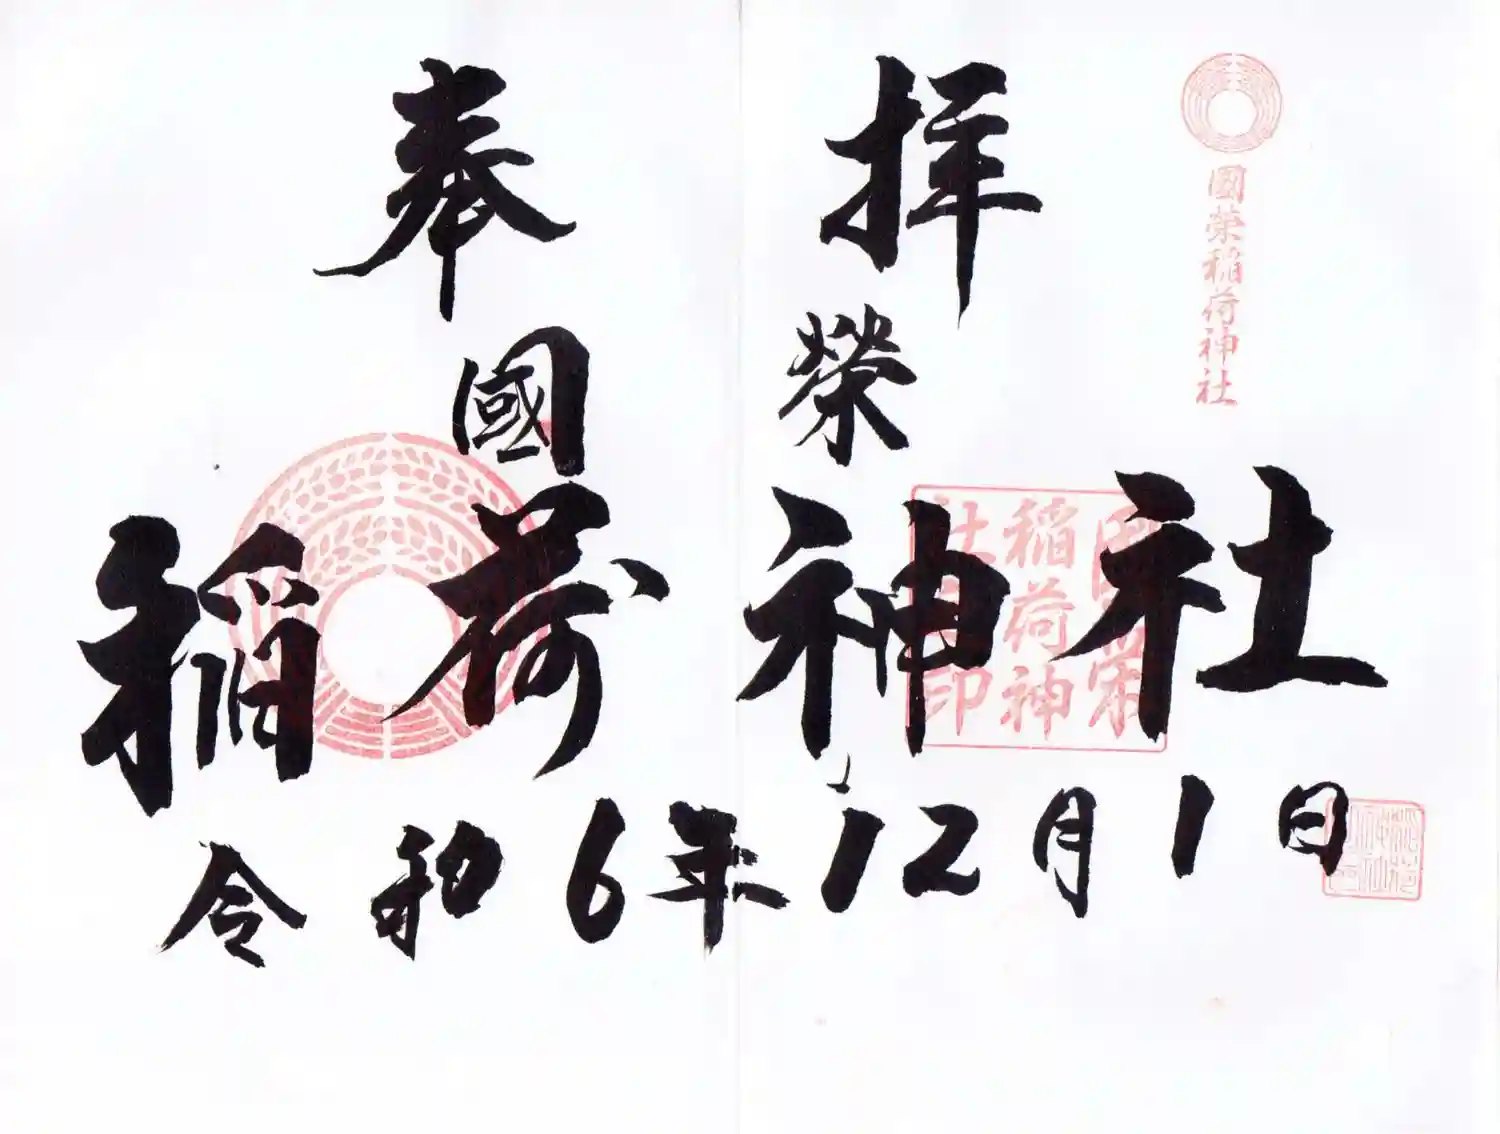 奉拝
國榮
稲荷神社
令和6年12月1日
國榮稲荷神社
國榮
稲荷神
社
印